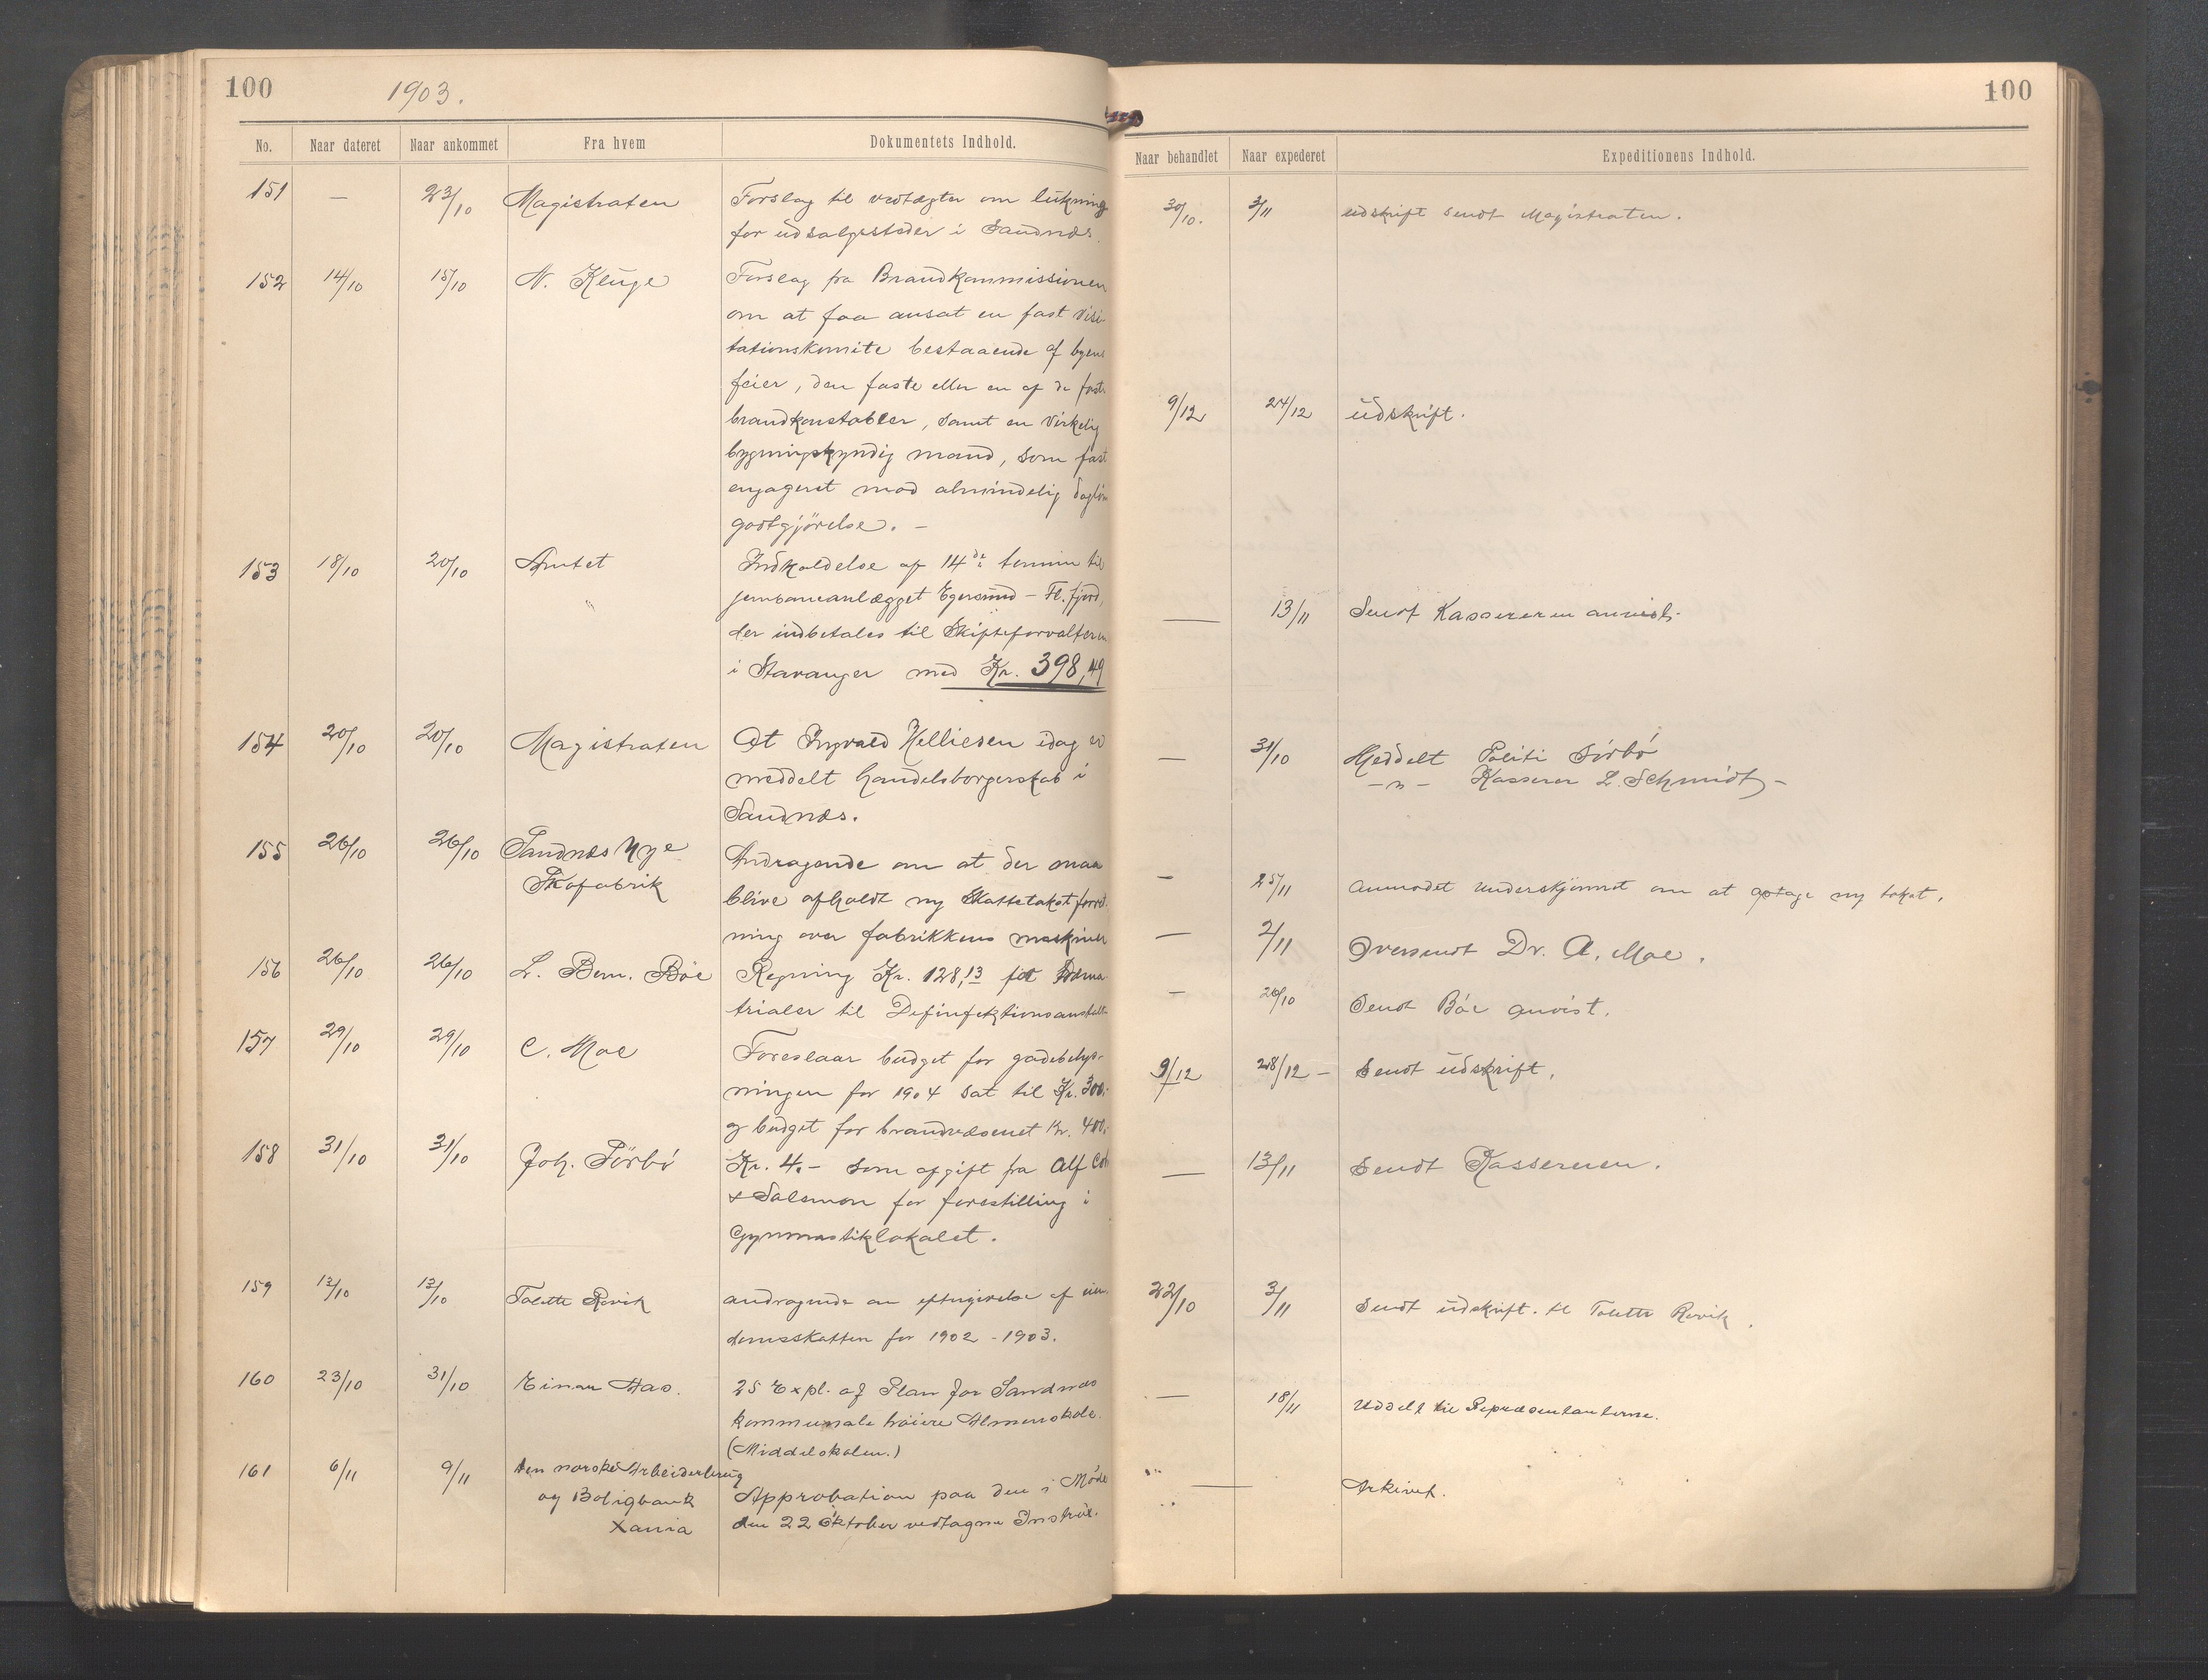 100
1903.
No. Naar dateret Naar ankommet Fra hvem Dokumentets Indhold.
151 — 23/10 Magistraten Forslag til vedtægter om lukning
for udsalgssteder i Sandnæs.
152 14/10 15/10 N. Kluge Forslag fra Brandkommissionen
om at faa ansat en fast visi-
tationskomite bestaaende af byens
feier, den faste eller en af de faste
brandkonstabler, samt en virkelig
bygningskyndig mand, som fast
engageret mod almindelig dagløn
godtgjörelse. —
153 18/10 20/10 Amtet Indkaldelse af 14de termin til
jernbaneanlægget Egersund – Fl. fjord,
der indbetales til Skifteforvalteren
i Stavanger med Kr. 398,49
154 20/10 20/10 Magistraten At Ingvald Helliesen idag er
meddelt handelsborgerskab i
Sandnæs.
155 26/10 26/10 Sandnæs nye
Skofabrik
Andragende om at der maa
blive afholdt ny Skattetakst
ning over fabrikkens maskiner
156 26/10 26/10 L. Bern. Bøe Regning Kr. 128,13 for
trialer til Desinfektionsanstalt
157 29/10 29/10 C. Moe Foreslaar budget for gadebelys-
ningen for 1904 sat til Kr. 300.-
og budget for brandvæsenet Kr. 400.-
158 31/10 31/10 Joh. Sörbö Kr. 4.- som afgift fra Alf
& Salomon for forestilling i
Gymnastiklokalet.
159 13/10 13/10 Tolette Rovik andragende om eftergivelse af eien-
domsskatten for 1902 - 1903.
160 23/10 31/10 Einar Aas. 25 Expl. af Plan for Sandnæs
kommunale høiere Almenskole.
(Middelskolen.)
161 6/11 9/11 Den norske Arbeiderbrug
og Boligbank
Xania
Approbation paa den i Møde
den 22 Oktober vedtagne Instrux.
100
Naar behandlet Naar expederet Expeditionens Indhold.
30/10. 3/11 udskrift sendt Magistraten.
9/12 24/12 udskrift.
— 13/11 Sendt Kassereren anvist.
— 31/10 Meddelt Politi Sörbö
— " — Kasserer L. Schmidt —
— 25/11 anmodet underskjønnet om at optage ny takst.
— 2/11 Oversendt Dr. A. Moe.
— 26/10 Sendt Bøe anvist.
9/12 28/12 — Sendt udskrift.
— 13/11 Sendt Kassereren.
22/10 3/11 Sendt udskrift. til Tolette Rovik.
— 18/11 Uddelt til Repræsentanterne.
— Arkivet.